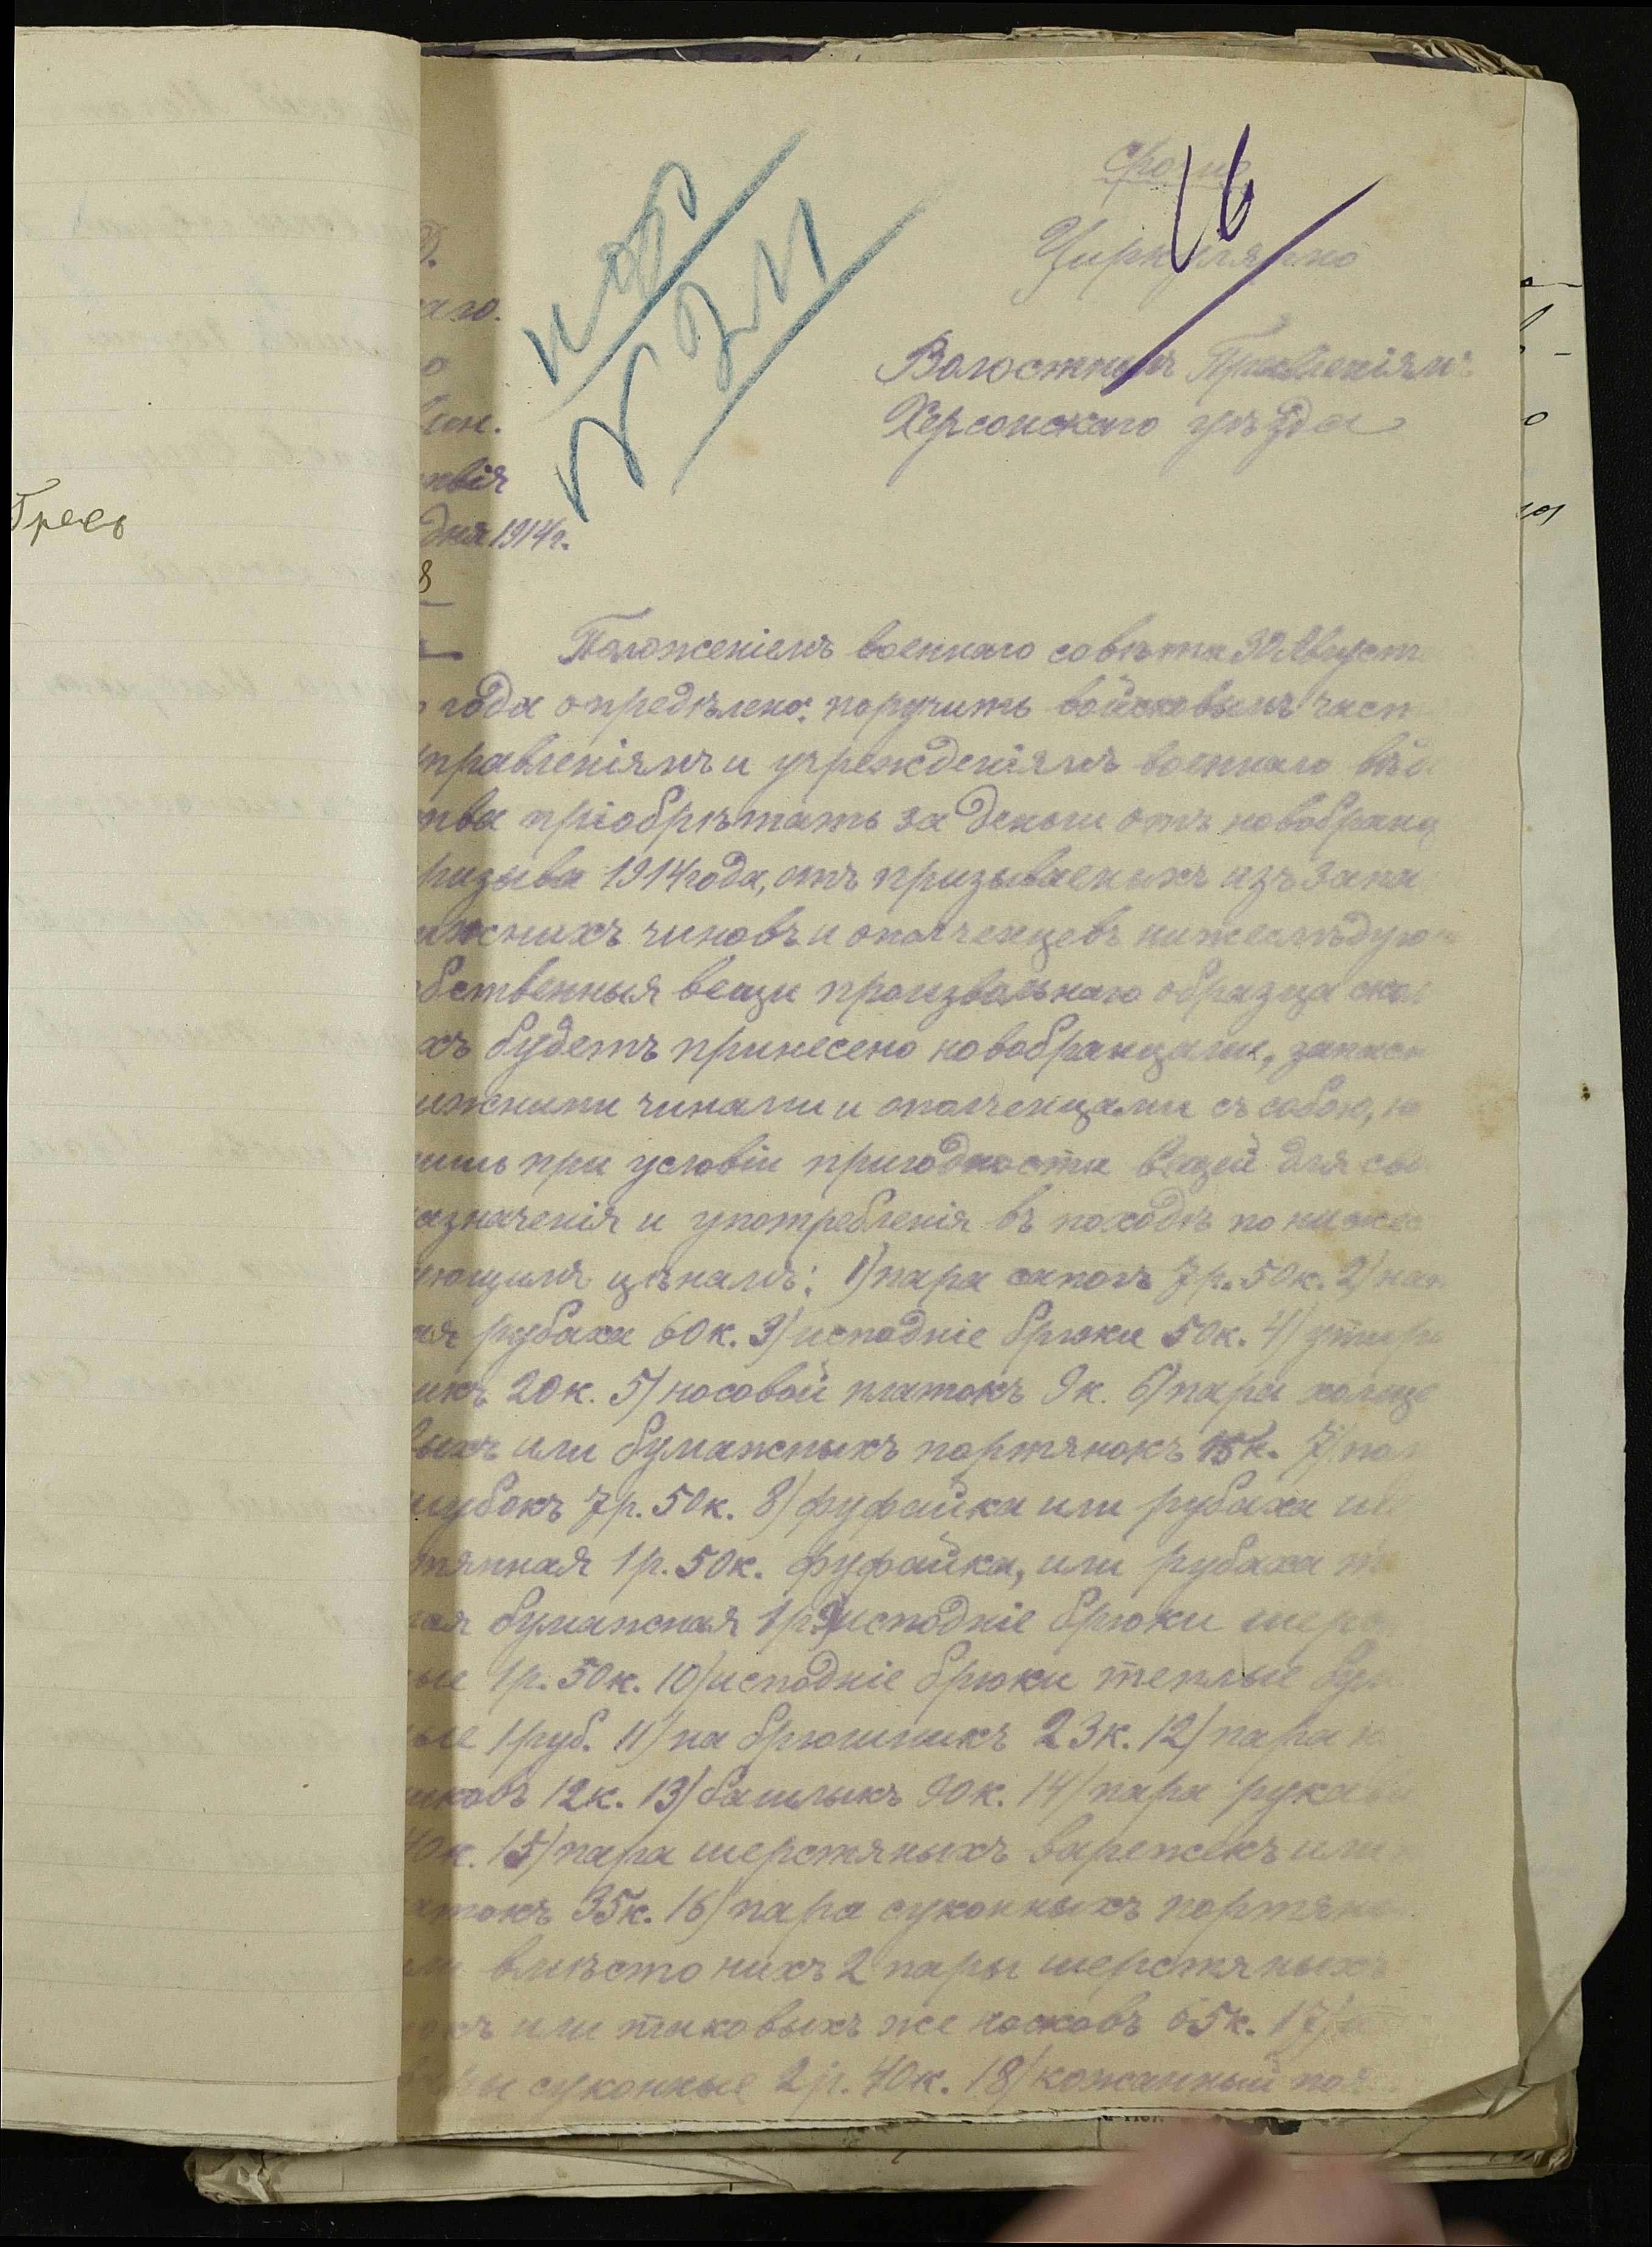 16
Срочно
Циркулярно
Волостнымъ Правленіямъ
Херсонскаго уѣзда
аго.
о
твія
дня 1914 г.
8
Гресь
Положеніемъ военнаго совѣта 30 Августа
года опредѣлено: поручить войсковымъ част
правленіямъ и учрежденіямъ военнаго вѣдо
тва пріобрѣтать за деньги отъ новобранц
ризыва 1914 года, отъ призываемыхъ изъ запа
ижнихъ чиновъ и ополченцевъ нижеслѣдую
бственныя вещи произвольнаго образца скол
хъ будетъ принесено новобранцами, запасн
ижними чинами и ополченцами съ собою, но
ишь при условіи пригодности вещей для сво
азначенія и употребленія въ походѣ по нижес
ующимъ цѣнамъ: 1) пара сапогъ 7 р. 50 к. 2) нат
ая рубаха 60 к. 3) исподніе брюки 50 к. 4) утира
икъ 20 к. 5) носовой платокъ 9 к. 6) пара холще
выхъ или бумажныхъ портянокъ 15 к. 7) пол
шубокъ 7 р. 50 к. 8) фуфайка или рубаха ше
тянная 1 р. 50 к. фуфайка, или рубаха т
ая бумажная 1 р. 9) исподніе брюки шерс
ые 1 р. 50 к. 10) исподніе брюки теплые бум
ые 1 руб. 11) на брюшникъ 23 к. 12) пара н
иковъ 12 к. 13) башлыкъ 90 к. 14) пара рукави
40 к. 15) пара шерстяныхъ варежекъ или
атокъ 35 к. 16) пара суконныхъ портяно
ли вмѣсто нихъ 2 пары шерстяныхъ
окъ или таковыхъ же носковъ 65 к. 17)
ры суконные 2 р. 40 к. 18) кожанный поя